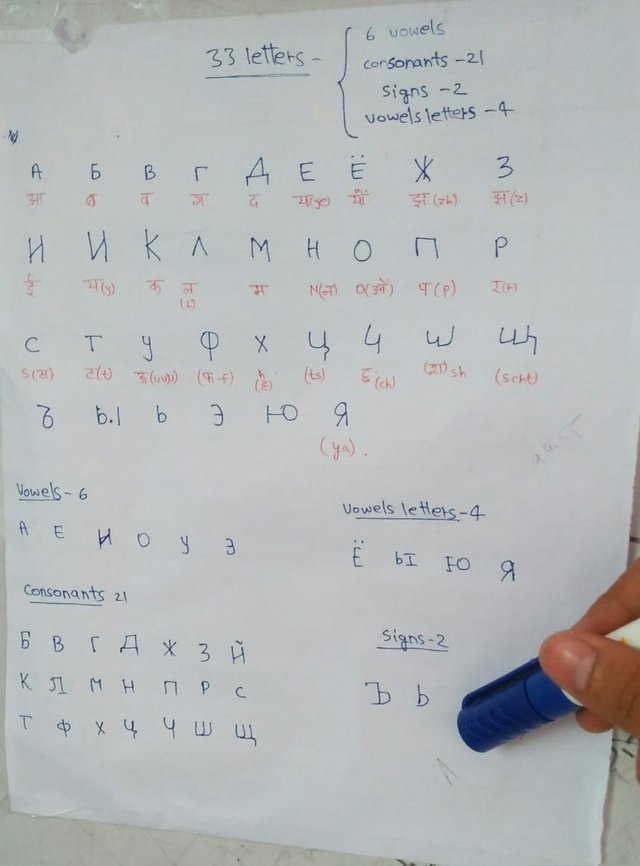 33 letters -
6 vowels
consonants - 21
signs - 2
vowels letters - 4
А Б В Г Д Е Ё Ж З
आ ब व ग द य(ye) यो झ(zh) झ(z)
И И К Л М Н О П Р
ई य(y) क ल (L) म N(न) O(ओ) प(P) र(r)
С Т У Ф Х Ц Ч Ш Щ
S(स) ट(t) ऊ(uu) (फ-f) h (ह) (ts) (ch) (श) sh (scht)
Ъ Ы Ь Э Ю Я
(ya).
Vowels - 6
А Е И О У Э
Vowels letters - 4
Ё Ы Ю Я
Consonants 21
Б В Г Д Ж З Й
К Л М Н П Р С
Т Ф Х Ц Ч Ш Щ
Signs - 2
Ъ Ь